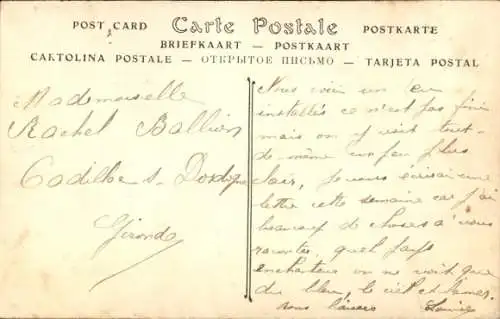 POST CARD Carte Postale POSTKARTE
BRIEFKAART — POSTKAART
CARTOLINA POSTALE — ОТКРЫТОЕ ПИСЬМО — TARJETA POSTAL
Mademoiselle
Rachel Ballion
Cadilhe s. Dordogne
Gironde
Nous voici un peu
installés ce n'est pas fini
mais on y voit tout-
de-même un peu plus
clair, je vous écrirai une
lettre cette semaine car j'ai
beaucoup de choses à vous
raconter, quel pays
enchanteur on ne voit que
du bleu, le ciel et la mer.
vous baisers